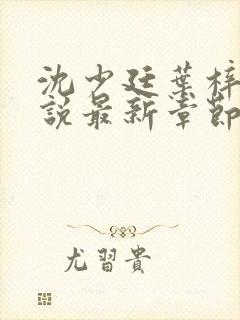 沈少廷葉梓
說最新章節
尤習貴